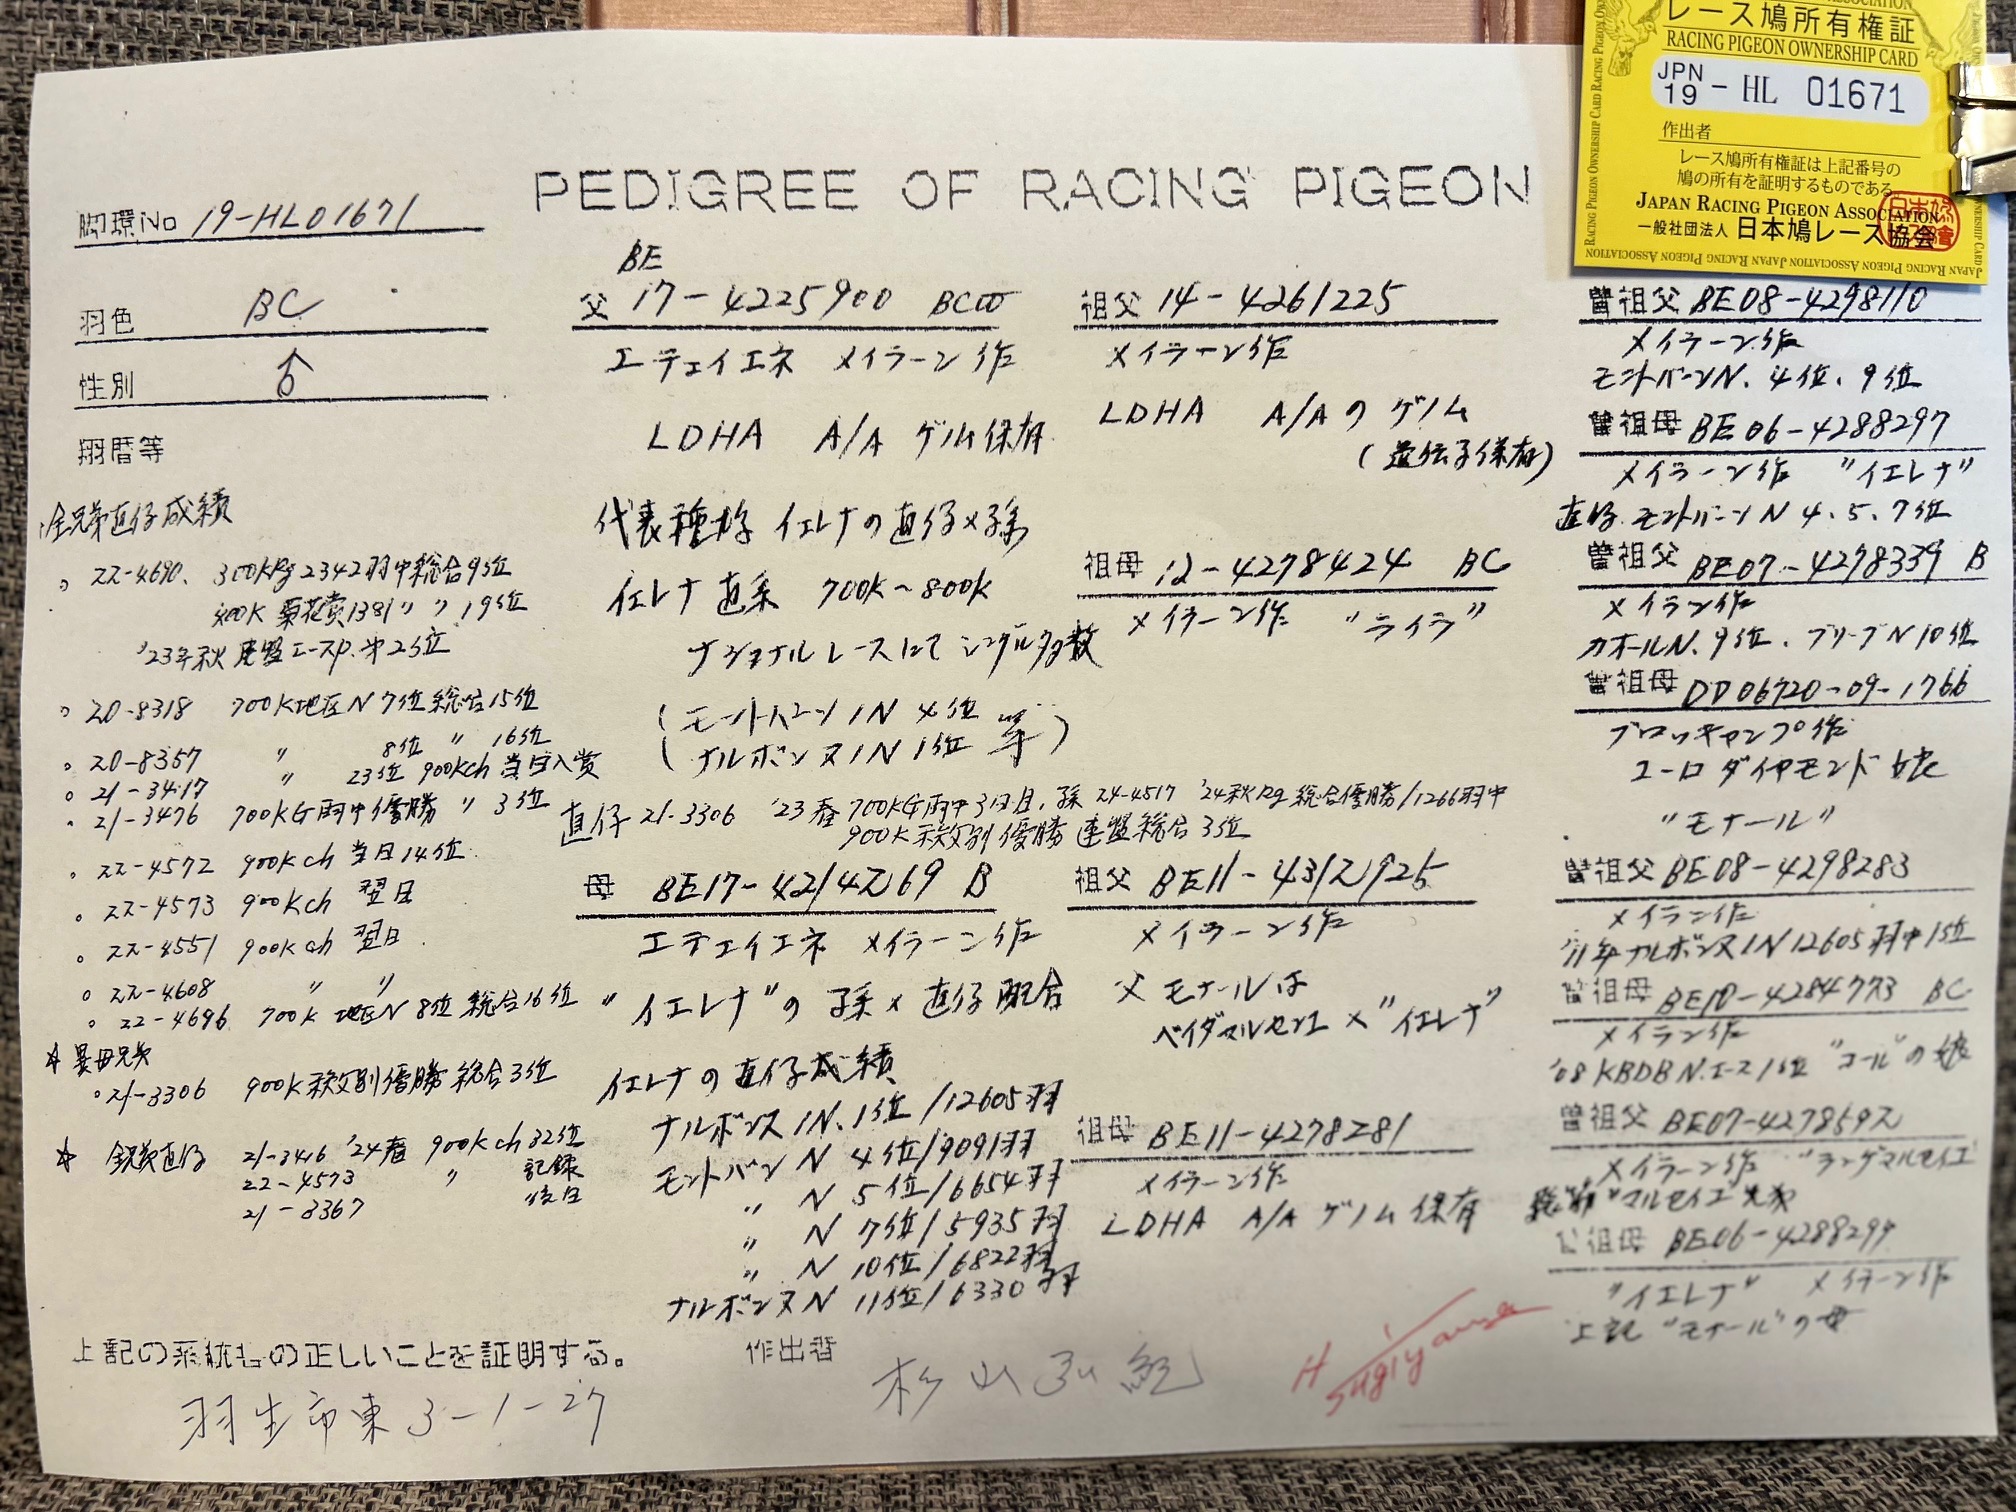 レース鳩所有権証
RACING PIGEON OWNERSHIP CARD
JPN 19 - HL 01671
作出者
レース鳩所有権証は上記番号の
鳩の所有を証明するものである
JAPAN RACING PIGEON ASSOCIATION
一般社団法人 日本鳩レース協会
PEDIGREE OF RACING PIGEON
脚環No 19-HL01671
羽色 BC
性別 ♂
翔暦等
全兄弟直仔成績
22-4690. 300KRg2342羽中総合9位
400K 菊花賞1381〃 〃 19位
'23年秋 連盟エースP.第2位
20-8318 700K地区N 7位総合15位
20-8357 〃 8位 〃 16位
21-3417 〃 23位 900Kch 当日入賞
21-3476 700KG雨中優勝 〃 3位
22-4572 900Kch 当日14位
22-4573 900Kch 翌日
22-4551 900Kch 翌日
22-4608 〃 〃
22-4696 700K 地区N 8位 総合16位
☆ 異母兄弟
21-3306 900K秩父別優勝 総合3位
☆ 全兄弟直仔 21-3416 '24春 900Kch 32位
22-4573 〃 記録
21-3367 〃 後日
BE
父 17-4225900 BCW
エティエイエネ メイラーン作
LDHA A/A ゲノム保有
代表種鳩 イエレナの直仔×孫
イエレナ直系 700K~800K
ナショナルレースにてシングル多数
(モントバン IN 4位
ナルボンヌ IN 1位 等)
直仔 21-3306 '23春 700KG雨中3日目, 孫 24-4517 '24秋Rg総合優勝/1266羽中
900K秩父別優勝 連盟総合3位
母 BE17-4214269 B
エティエイエネ メイラーン作
"イエレナ"の孫×直仔配合
イエレナの直仔成績
ナルボンヌ IN.1位/12605羽
モントバン N 4位/9091羽
〃 N 5位/6654羽
〃 N 7位/5935羽
〃 N 10位/6822羽
ナルボンヌ N 11位/6330羽
祖父 14-4261225
メイラーン作
LDHA A/Aのゲノム
(遺伝子保有)
祖母 12-4278424 BC
メイラーン作 "ライラ"
祖父 BE11-4312925
メイラーン作
父 モナールは
ベイダマルセンエ×"イエレナ"
祖母 BE11-4278281
メイラーン作
LDHA A/A ゲノム保有
曽祖父 BE08-4298110
メイラーン作
モントバーンN. 4位. 9位
曽祖母 BE06-4288297
メイラーン作 "イエレナ"
直仔 モントバーンN 4. 5. 7位
曽祖父 BE07-4278339 B
メイラン作
カオールN. 9位. ブリーブN 10位
曽祖母 DD06720-09-1766
ブロッキャンプ作
ユーロダイヤモンド娘
"モナール"
曽祖父 BE08-4298283
メイラン作
'11年ナルボンヌIN12605羽中1位
曽祖母 BE10-4284773 BC
メイラン作
'08 KBDB N.エース1位 "コール"の娘
曽祖父 BE07-4278592
メイラーン作 "ヨンゲマルセイエ"
"マルセイエ兄弟
曽祖母 BE06-4288297
"イエレナ" メイラーン作
上記 "モナール"の母
上記の系統もの正しいことを証明する。 作出者
羽生市東3-1-27
杉山弘紀
H Sugiyama